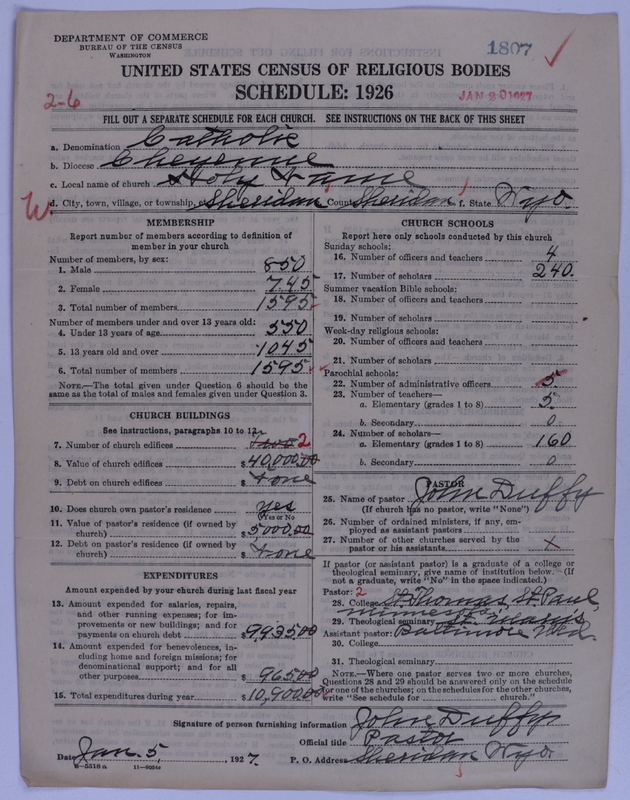 DEPARTMENT OF COMMERCE
BUREAU OF THE CENSUS
WASHINGTON
1807
UNITED STATES CENSUS OF RELIGIOUS BODIES
SCHEDULE: 1926
2-6
JAN 20 1927
FILL OUT A SEPARATE SCHEDULE FOR EACH CHURCH. SEE INSTRUCTIONS ON THE BACK OF THIS SHEET
a. Denomination Catholic
b. Diocese Cheyenne
c. Local name of church Holy Name
W d. City, town, village, or township, Sheridan County Sheridan f. State Wyo.
MEMBERSHIP
Report number of members according to definition of
member in your church
Number of members, by sex:
1. Male 850
2. Female 745
3. Total number of members 1595
Number of members under and over 13 years old:
4. Under 13 years of age 550
5. 13 years old and over 1045
6. Total number of members 1595
NOTE.—The total given under Question 6 should be the
same as the total of males and females given under Question 3.
CHURCH BUILDINGS
See instructions, paragraphs 10 to 12
7. Number of church edifices two 2
8. Value of church edifices $40,000.00
9. Debt on church edifices $ None
10. Does church own pastor's residence yes
(Yes or No
11. Value of pastor's residence (if owned by
church) $5,000.00
12. Debt on pastor's residence (if owned by
church) $ None
EXPENDITURES
Amount expended by your church during last fiscal year
13. Amount expended for salaries, repairs,
and other running expenses; for im-
provements or new buildings; and for
payments on church debt $9935.00
14. Amount expended for benevolences, in-
cluding home and foreign missions; for
denominational support; and for all
other purposes $965.00
15. Total expenditures during year $10,900.00
CHURCH SCHOOLS
Report here only schools conducted by this church
Sunday schools:
16. Number of officers and teachers 4
17. Number of scholars 240.
Summer vacation Bible schools:
18. Number of officers and teachers
19. Number of scholars
Week-day religious schools:
20. Number of officers and teachers
21. Number of scholars
Parochial schools:
22. Number of administrative officers 5.
23. Number of teachers—
a. Elementary (grades 1 to 8) 5.
b. Secondary 0
24. Number of scholars—
a. Elementary (grades 1 to 8) 160
b. Secondary 0
PASTOR
25. Name of pastor John Duffy
(If church has no pastor, write "None")
26. Number of ordained ministers, if any, em-
ployed as assistant pastors
27. Number of other churches served by the
pastor or his assistants x
If pastor (or assistant pastor) is a graduate of a college or
theological seminary, give name of institution below. (If
not a graduate, write "No" in the space indicated.)
Pastor: 2
28. College St. Thomas St. Paul
29. Theological seminary St. Mary's
Assistant pastor: Baltimore Md.
30. College
31. Theological seminary
NOTE.—Where one pastor serves two or more churches,
Questions 28 and 29 should be answered only on the schedule
for one of the churches; on the schedules for the other churches,
write "See schedule for church."
Signature of person furnishing information John Duffy
Official title Pastor
Date Jan. 5, 1927. P. O. Address Sheridan Wyo.
8-5518a 11-9054